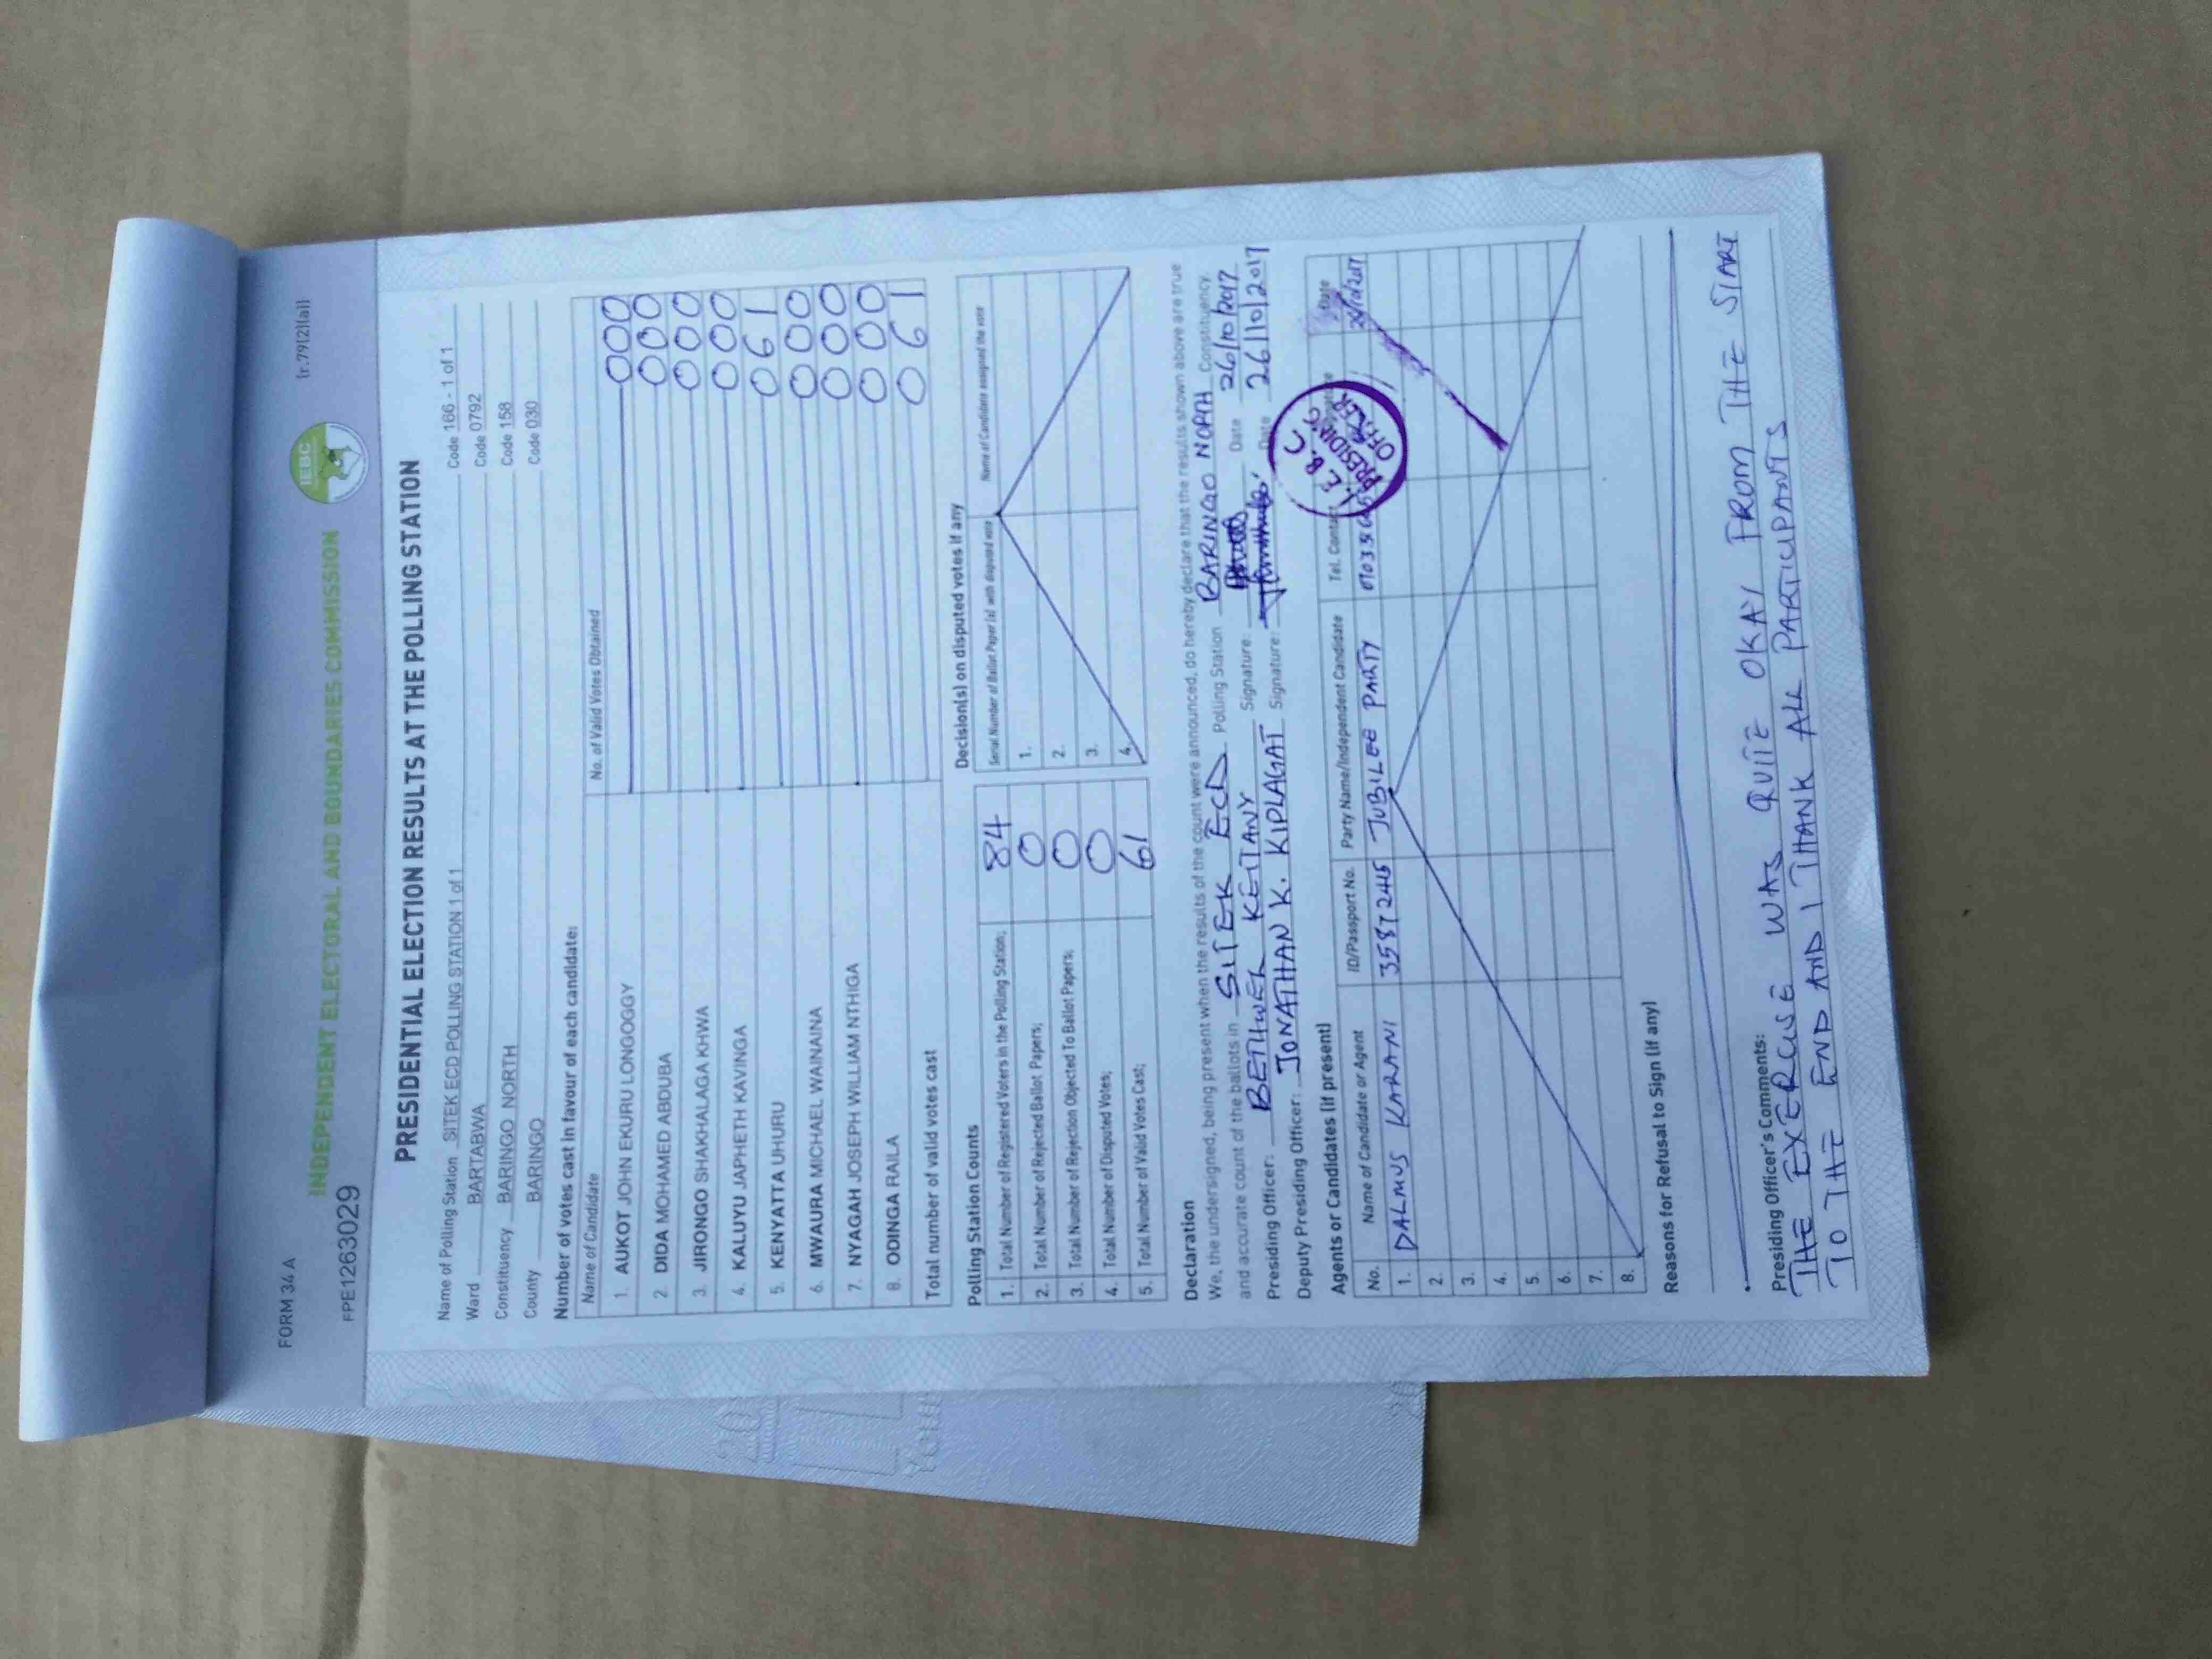 FORM 34 A
(r.79(2)(a))
FPE1263029
IEBC
INDEPENDENT ELECTORAL AND BOUNDARIES COMMISSION
PRESIDENTIAL ELECTION RESULTS AT THE POLLING STATION
Name of Polling Station SITEK ECD POLLING STATION 1 of 1 Code 166 - 1 of 1
Ward BARTABWA Code 0792
Constituency BARINGO NORTH Code 158
County BARINGO Code 030
Number of votes cast in favour of each candidate:
Name of Candidate No. of Valid Votes Obtained
1. AUKOT JOHN EKURU LONGOGGY 000
2. DIDA MOHAMED ABDUBA 000
3. JIRONGO SHAKHALAGA KHWA 000
4. KALUYU JAPHETH KAVINGA 000
5. KENYATTA UHURU 061
6. MWAURA MICHAEL WAINAINA 000
7. NYAGAH JOSEPH WILLIAM NTHIGA 000
8. ODINGA RAILA 000
Total number of valid votes cast 061
Polling Station Counts
1. Total Number of Registered Voters in the Polling Station; 84
2. Total Number of Rejected Ballot Papers; 0
3. Total Number of Rejection Objected To Ballot Papers; 0
4. Total Number of Disputed Votes; 0
5. Total Number of Valid Votes Cast; 61
Decision(s) on disputed votes if any
Serial Number of Ballot Paper (s) with disputed vote Name of Candidate assigned the vote
1.
2.
3.
4.
Declaration
We, the undersigned, being present when the results of the count were announced, do hereby declare that the results shown above are true
and accurate count of the ballots in SITEK ECD Polling Station BARINGO NORTH Constituency.
Presiding Officer: BETHWEL KEITANY Signature: Date 26/10/2017
Deputy Presiding Officer: JONATHAN K. KIPLAGAT Signature: Date 26/10/2017
Agents or Candidates (if present)
No. Name of Candidate or Agent ID/Passport No. Party Name/Independent Candidate Tel. Contact Date
1. DALMUS KARANI 35872415 JUBILEE PARTY
2.
3.
4.
5.
6.
7.
8.
I.E.B.C
PRESIDING
OFFICER
Reasons for Refusal to Sign (if any)
Presiding Officer's Comments:
THE EXERCISE WAS QUITE OKAY FROM THE START
TO THE END AND I THANK ALL PARTICIPANTS